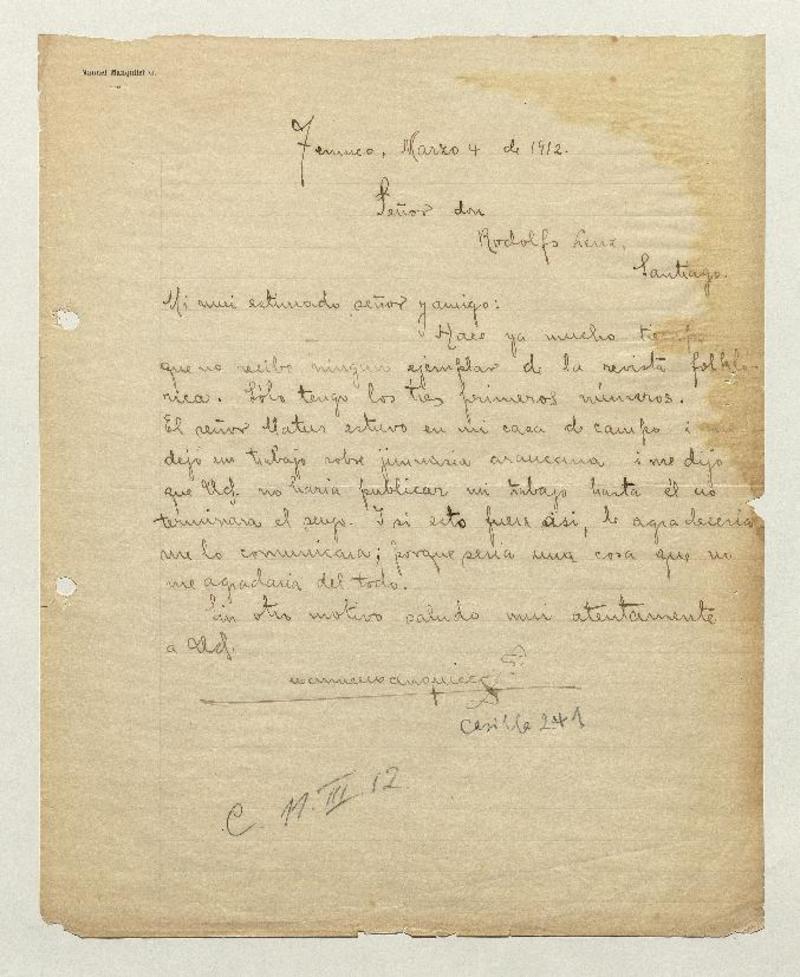 Manuel Manquilef G.
Temuco, Marzo 4 de 1912.
Señor don
Rodolfo Lenz,
Santiago.
Mi mui estimado señor y amigo:
Hace ya mucho tiempo
que no recibo ningun ejemplar de la revista folkló-
rica. Sólo tengo los tres primeros números.
El señor Matus estuvo en mi casa d campo i
dejó un trabajo sobre jimnasia araucana i me dijo
que Ud. no haria publicar mi trabajo hasta él no
terminara el suyo. I si esto fuere así, le agradeceria
me lo comunicara; porque seria una cosa que no
me agradaria del todo.
Sin otro motivo saludo mui atentamente
a Ud.
Manuel Manquilef G.
Casilla 241
C 11. III 12